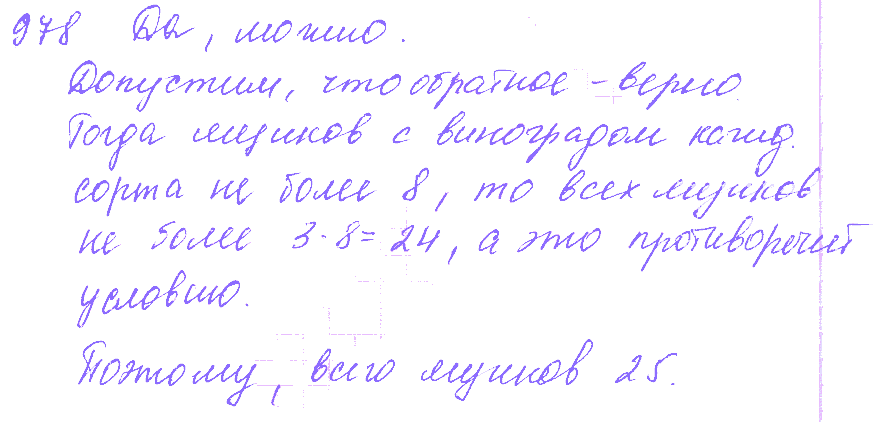 978 Да, можно.
Допустим, что обратное - верно.
Тогда ящиков с виноградом кажд.
сорта не более 8, то всех ящиков
не более 3·8=24, а это противоречит
условию.
Поэтому, всего ящиков 25.